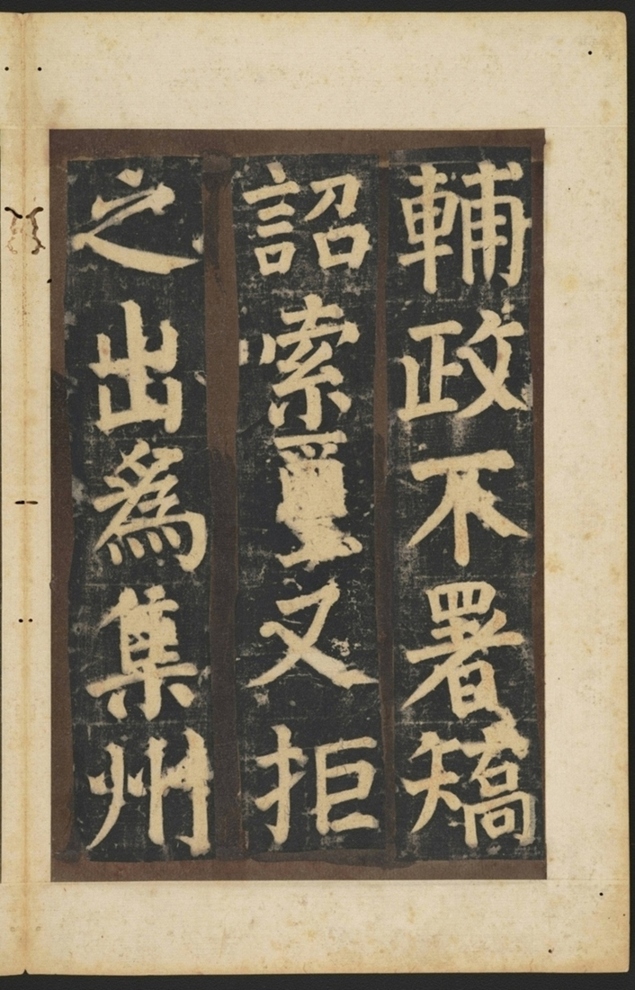 輔政不署矯
詔索又拒
之出為集州